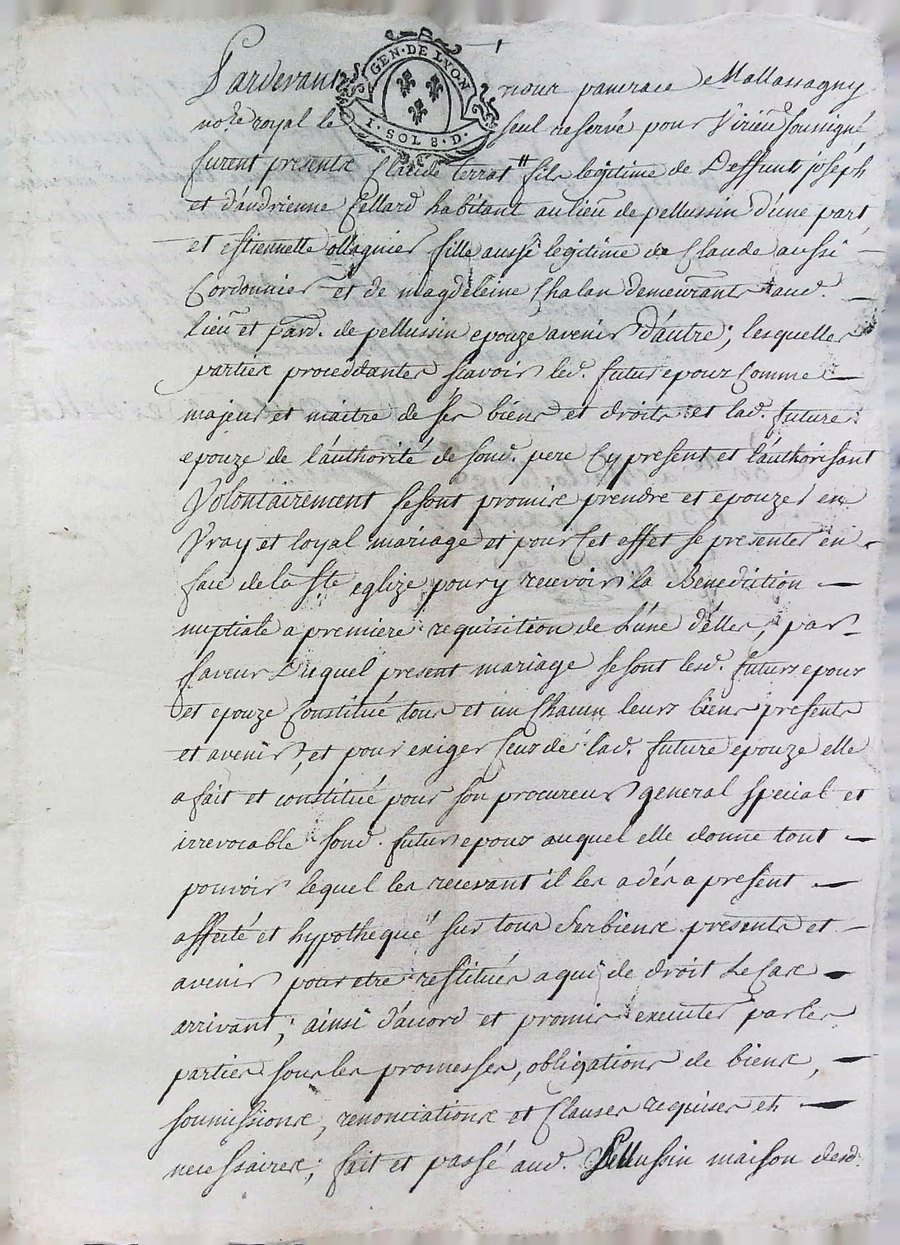 GEN · DE LYON
1 · SOL 8 · D ·
Pardevant nous pancrace Mallassagny
no.re royal le seul reservé pour Virieu soussigné
furent presents Claude terrat fils legitime de Deffunts joseph
et d'andrienne Cellard habitant au lieu de pellussin d'une part
et estiennette ollagnier fille aussi legitime de Claude aussi
Cordonnier et de magdeleine Chalan demeurants aud.
lieu et parr. de pellussin epouze avenir d'autre; lesquelles
parties proceddantes scavoir led. futur epoux Comme
majeur et maitre de ses biens et droits et lad. future
epouze de l'authorité de sond. pere Cy present et l'authorisant
Volontairement se sont promis prendre et epouzer en
Vray et loyal mariage et pour Cet effet se presenter en
face de la Ste eglize pour y recevoir la Benediction
nuptiale a premiere requisition de L'une d'elles, par
faveur Duquel present mariage se sont lesd. futurs epoux
et epouze Constitué tous et un Chacun leurs biens presents
et avenir, et pour exiger Ceux de lad. future epouze elle
a fait et constitué pour son procureur general special et
irrevocable sond. futur epoux auquel elle donne tout
pouvoir lequel les recevant il les a dés a present
affecté et hypothequé sur tous ses biens presents et
avenir pour etre restitués a qui de droit Le Cas
arrivant; ainsi d'acord et promis executer par les
parties sous les promesses, obligations de biens,
soumissions, renonciations et Clauses requises et
necessaires; fait et passé aud. Pellussin maison desd.